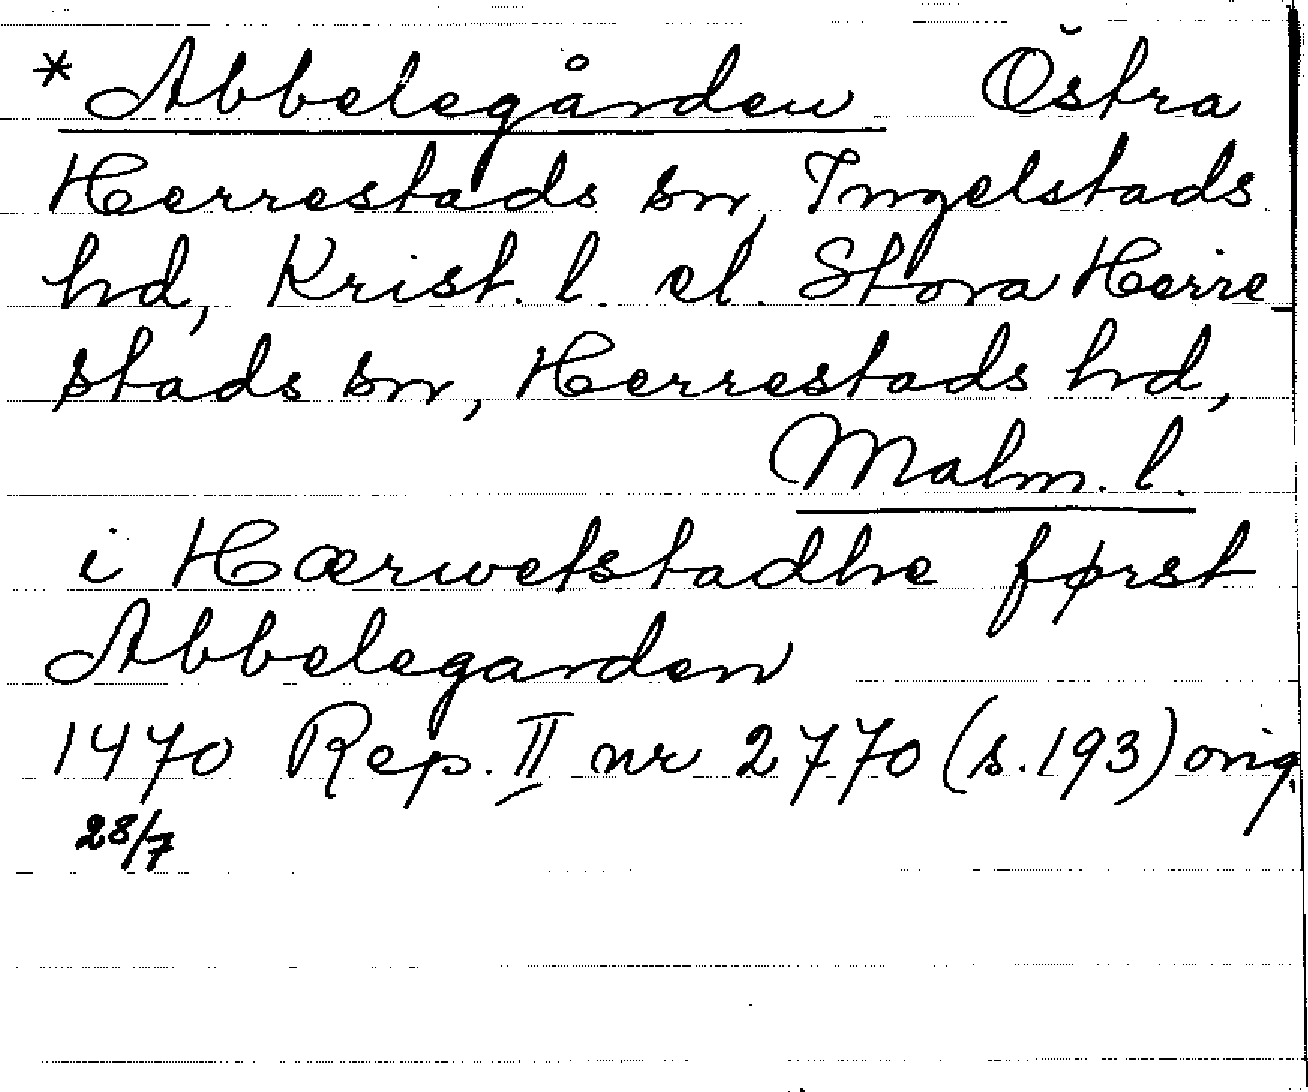 *Abbelegården Östra
Herrestads sn, Ingelstads
hd, Krist. l. el. Stora Herre-
stads sn, Herrestads hd,
Malm. l.
i Hærwetstadhe først
Abbelegarden
1470 Rep. II nr 2770 (s. 193) orig.
28/7